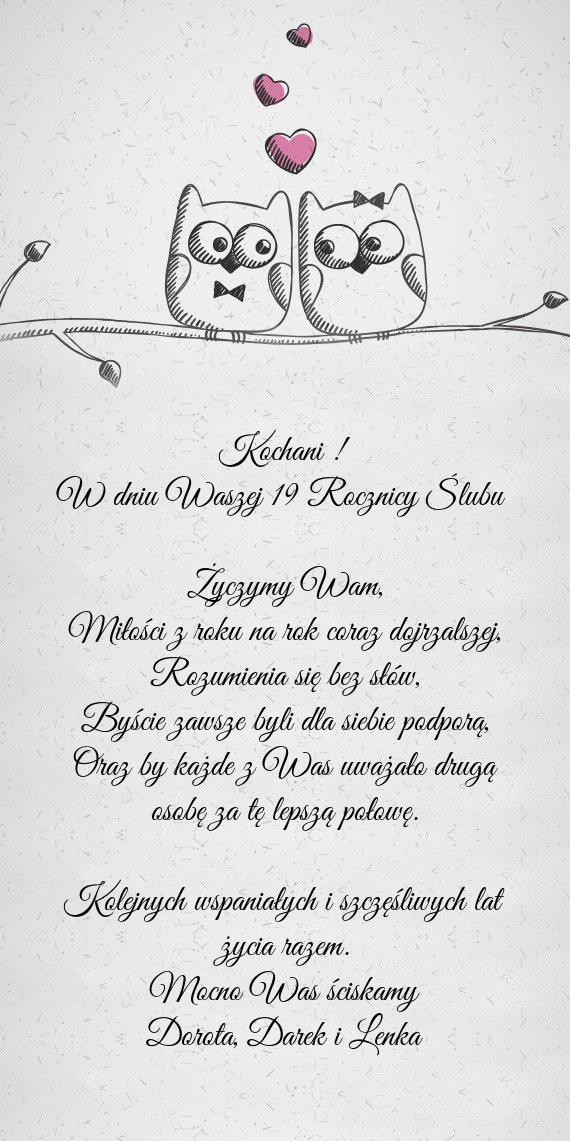 Kochani !
W dniu Waszej 19 Rocznicy Ślubu
Życzymy Wam,
Miłości z roku na rok coraz dojrzalszej,
Rozumienia się bez słów,
Byście zawsze byli dla siebie podporą,
Oraz by każde z Was uważało drugą
osobę za tę lepszą połowę.
Kolejnych wspaniałych i szczęśliwych lat
życia razem.
Mocno Was ściskamy
Dorota, Darek i Lenka